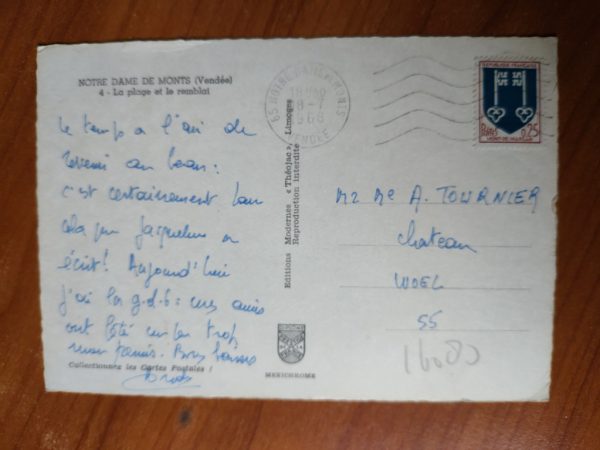 NOTRE DAME DE MONTS (Vendée)
4 - La plage et le remblai
Le temps a l'air de
revenir au beau :
c'est certainement pour
cela que Jacqueline a
écrit! Aujourd'hui
j'ai la g.d.b : mes amis
ont fêté
Bons baisers
Collectionnez les Cartes Postales !
Editions Modernes « Théojac », Limoges
Reproduction interdite
MEXICHROME
NOTRE DAME DE MONTS
18H
8-7
1968
VENDEE
REPUBLIQUE FRANÇAISE
0,25
MONT-DE-MARSAN
M2 Me A. TOURNIER
chateau
WOEL
55